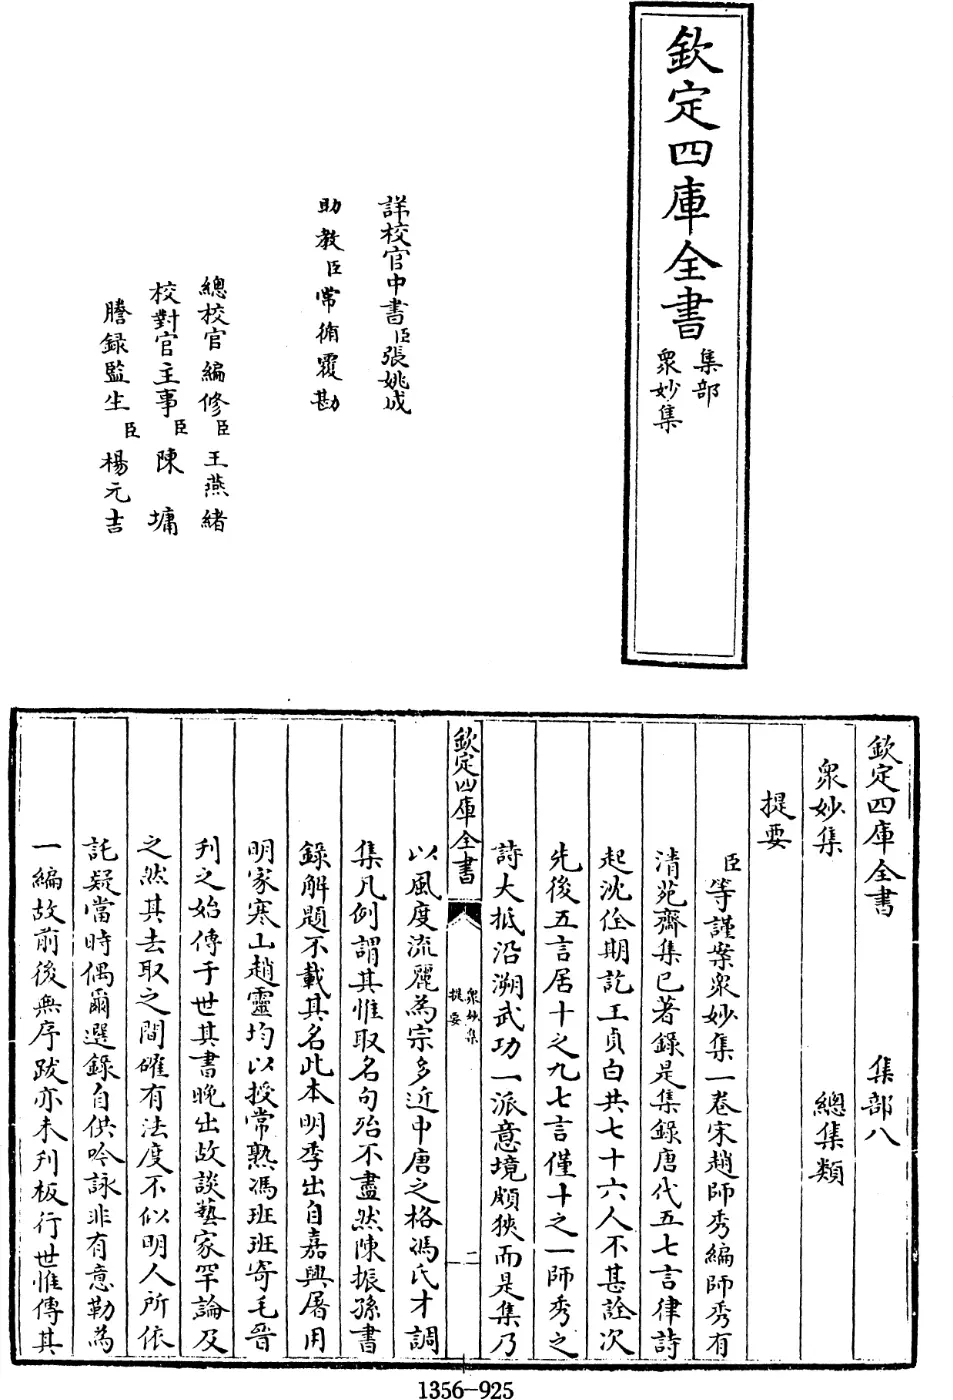 欽定四庫全書
集部
衆妙集
詳校官中書臣張姚成
助教臣常循覆勘
總校官編修臣王燕緒
校對官主事臣陳墉
謄録監生臣楊元吉
欽定四庫全書 集部八
衆妙集 總集類
提要
臣等謹案衆妙集一卷宋趙師秀編師秀有
清苑齋集已著錄是集錄唐代五七言律詩
起沈佺期訖王貞白共七十六人不甚詮次
先後五言居十之九七言僅十之一師秀之
詩大抵沿溯武功一派意境頗狹而是集乃
欽定四庫全書
衆妙集
提要
二
以風度流麗為宗多近中唐之格馮氏才調
集凡例謂其惟取名句殆不盡然陳振孫書
錄解題不載其名此本明季出自嘉興屠用
明家寒山趙靈均以授常熟馮班班寄毛晉
刋之始傳于世其書晚出故談藝家罕論及
之然其去取之間確有法度不似明人所依
託疑當時偶爾選錄自供吟詠非有意勒為
一編故前後無序跋亦未刋板行世惟傳其
1356-925